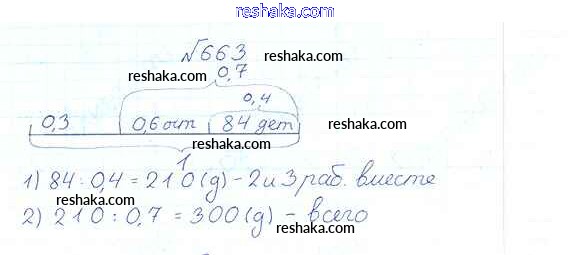 reshaka.com
№663
reshaka.com
reshaka.com
0,7
reshaka.com
0,4
0,3
0,6 ост
84 дет
reshaka.com
1
1) 84 : 0,4 = 210 (д) - 2 и 3 раб. вместе
reshaka.com
reshaka.com
2) 210 : 0,7 = 300 (д) - всего
reshaka.com